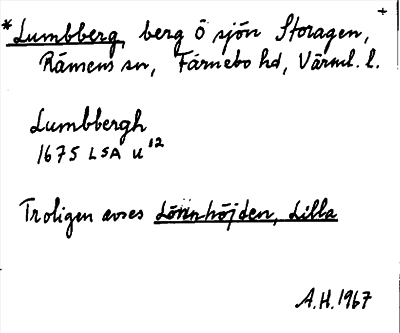 *Lumbberg, berg Ö sjön Storagen,
Rämens sn, Färnebo hd, Värml. l.
Lumbbergh
1675 LSA U12
Troligen avses Lönnhöjden, Lilla
A.H. 1967